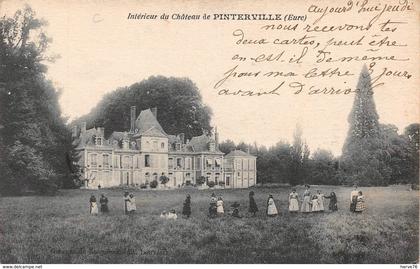 Intérieur du Château de PINTERVILLE (Eure)
Aujourd'hui jeudi
nous recevons tes
deux cartes, peut être
en est-il de même
pour ma lettre 3 jours
avant d'arriver.
hervé76